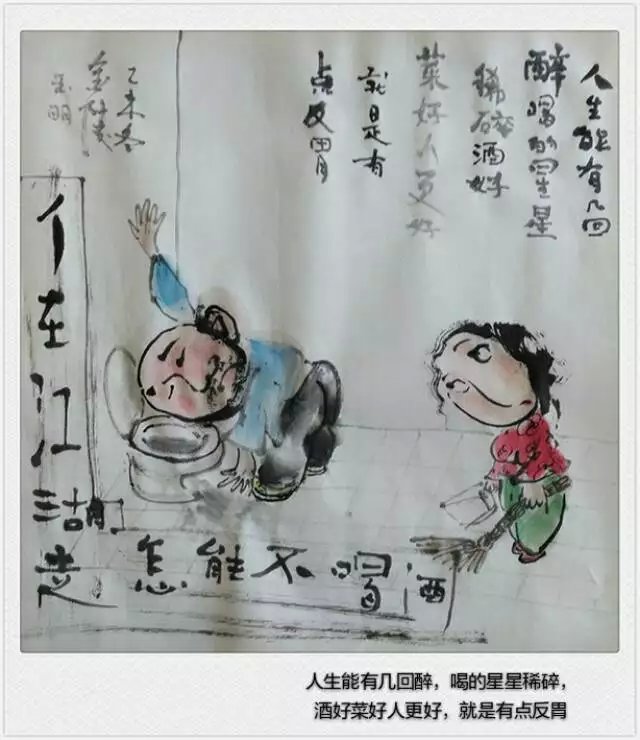 人生能有几回
醉喝的星星
稀碎酒好
菜好人更好
就是有
点反胃
乙未冬
金陵
人在江湖走
怎能不喝酒
人生能有几回醉，喝的星星稀碎，
酒好菜好人更好，就是有点反胃